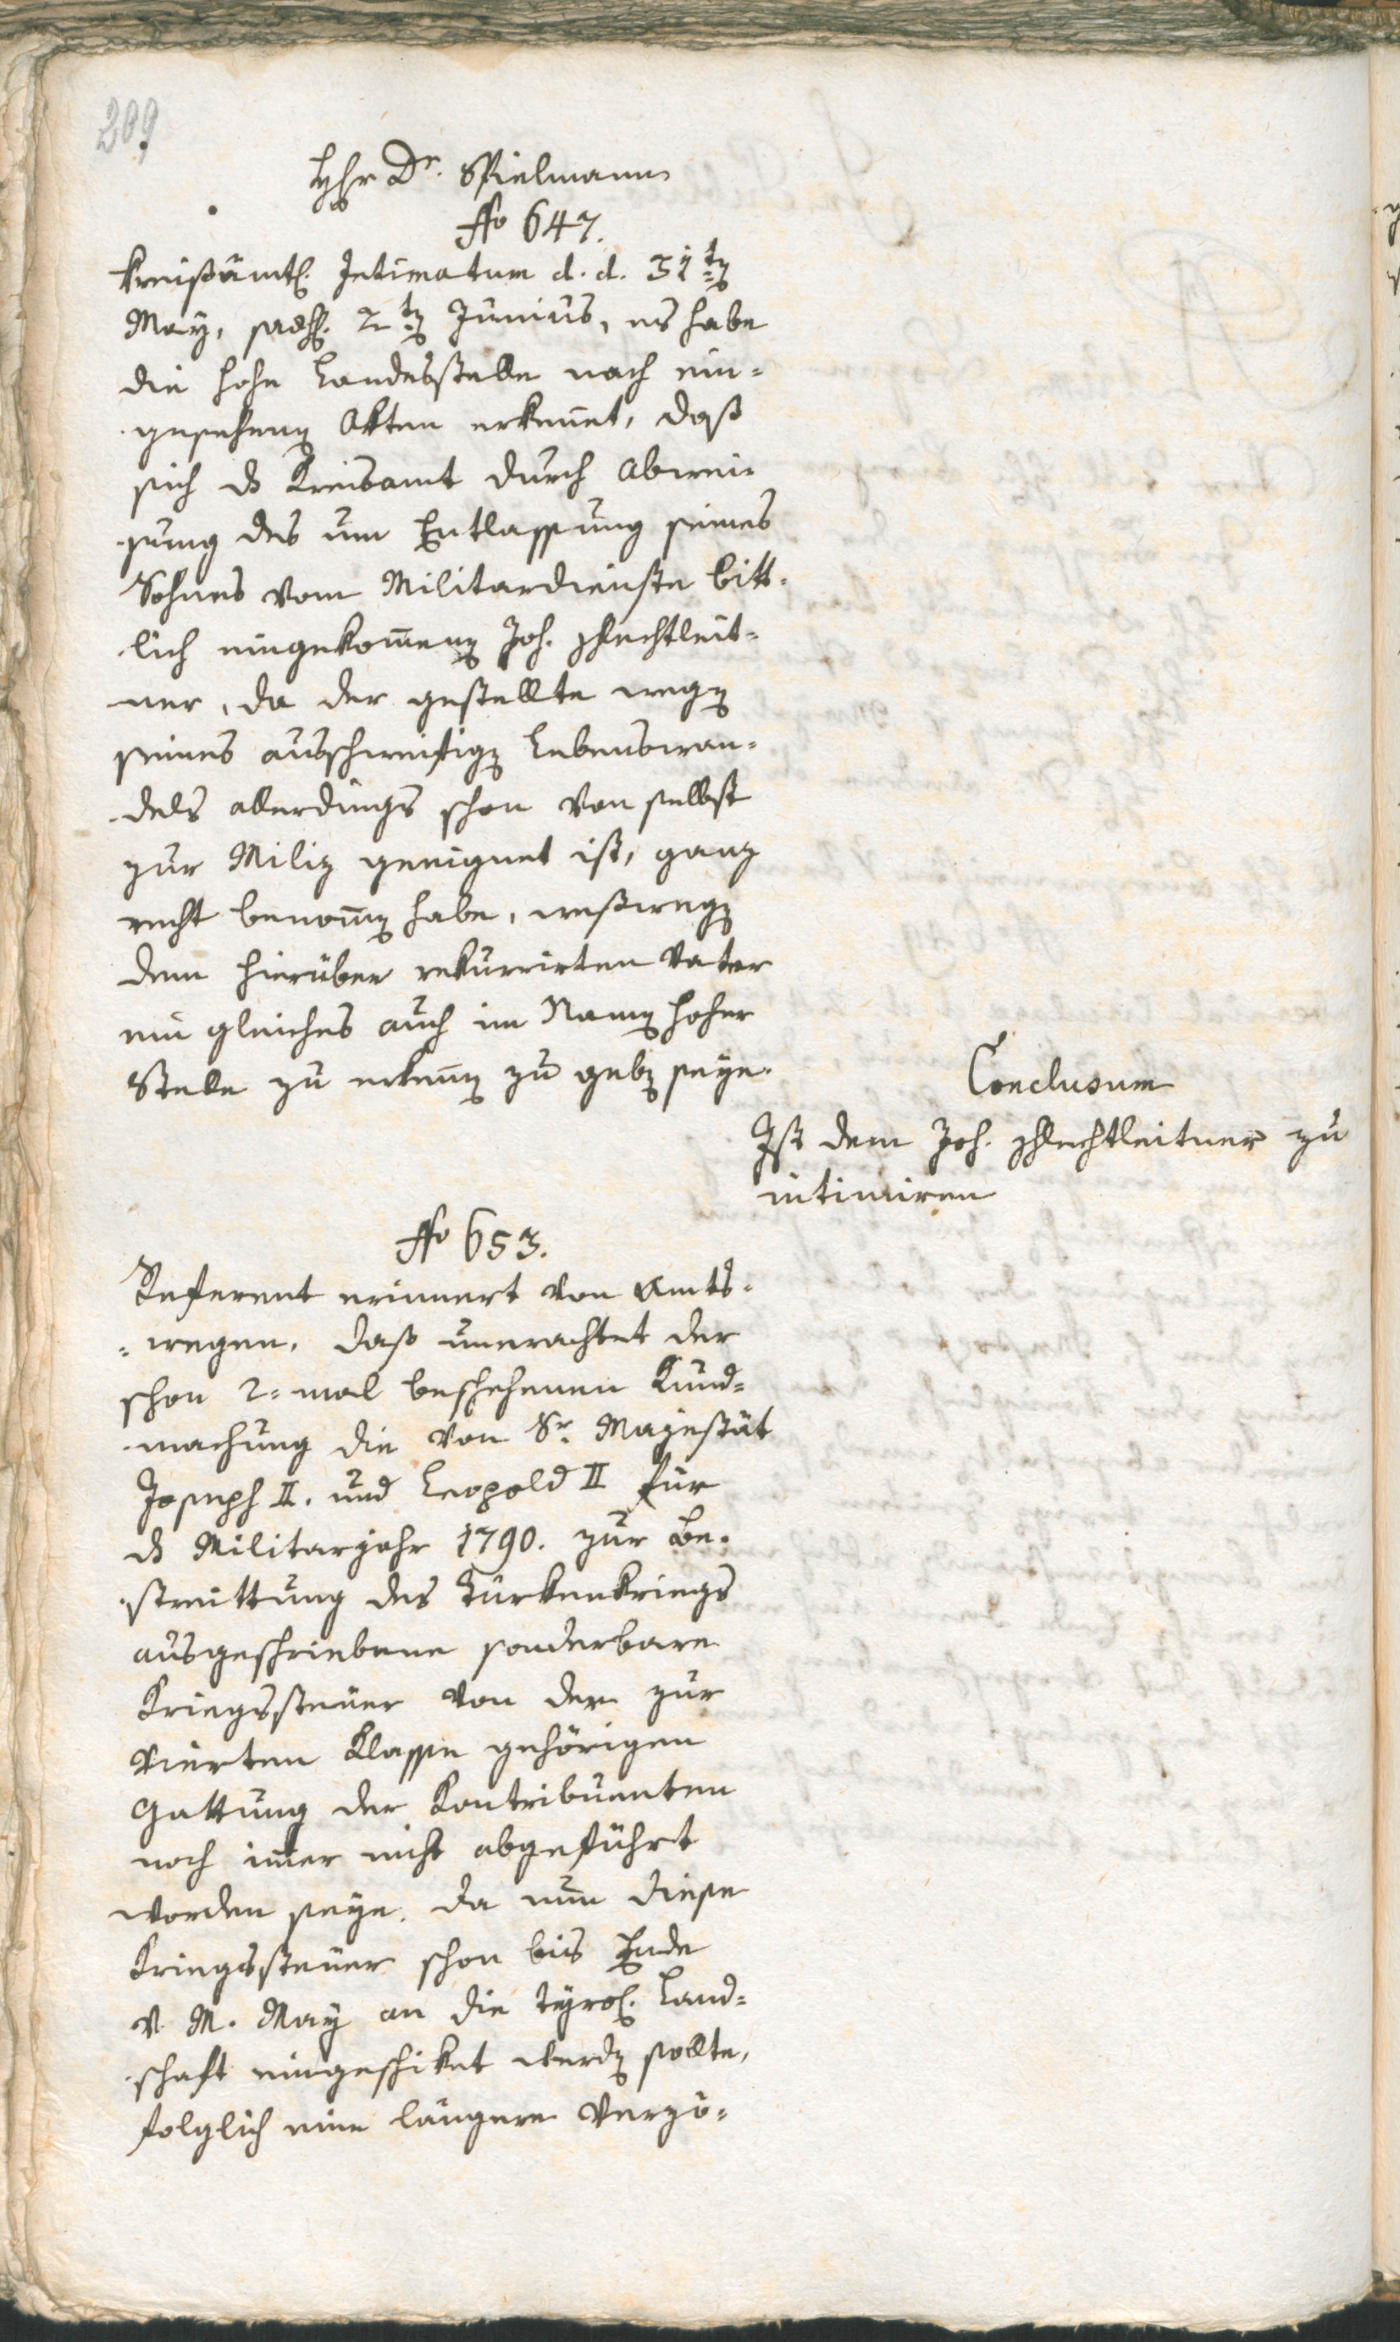 209
Hr. Dr. Spielmann
No 647.
Kreisämtl. Intimatum d. d. 31ten
May, 2ten Junius, es habe
die hohe Landesstelle nach ein-
gesehenen Akten erkennt, daß
sich ds Kreisamt durch Abwei-
sung des um Entlassung seines
Sohnes vom Militardienste bitt-
lich eingekomenen Joh. Schlechtleit-
ner, da der gestellte wegen
seines ausschweifigen Lebenswan-
dels allerdings schon von selbst
zur Miliz geeignet ist, ganz
recht benomen habe, weßwegen
dem hierüber rekurrirten Vater
ein gleiches auch im Namen hoher
Stelle zu erkennen zu geben seye.
Conclusum
Ist dem Joh. Schlechtleitner zu
intimiren
No 653.
Referent erinnert von Amts-
wegen, daß unerachtet der
schon 2-mal beschehenen Kund-
machung die von Sr. Majestät
Joseph II. und Leopold II für
ds Militarjahr 1790. zur Be-
streittung des Türkenkriegs
ausgeschriebene sonderbare
Kriegssteuer von der zur
vierten Klasse gehörigen
Gattung der Kontribuenten
noch imer nicht abgeführt
worden seye. Da nun diese
Kriegssteuer schon bis Ende
v. M. May an die tyrol. Land-
schaft eingeschiket werden sollte,
folglich eine längere Verzö-